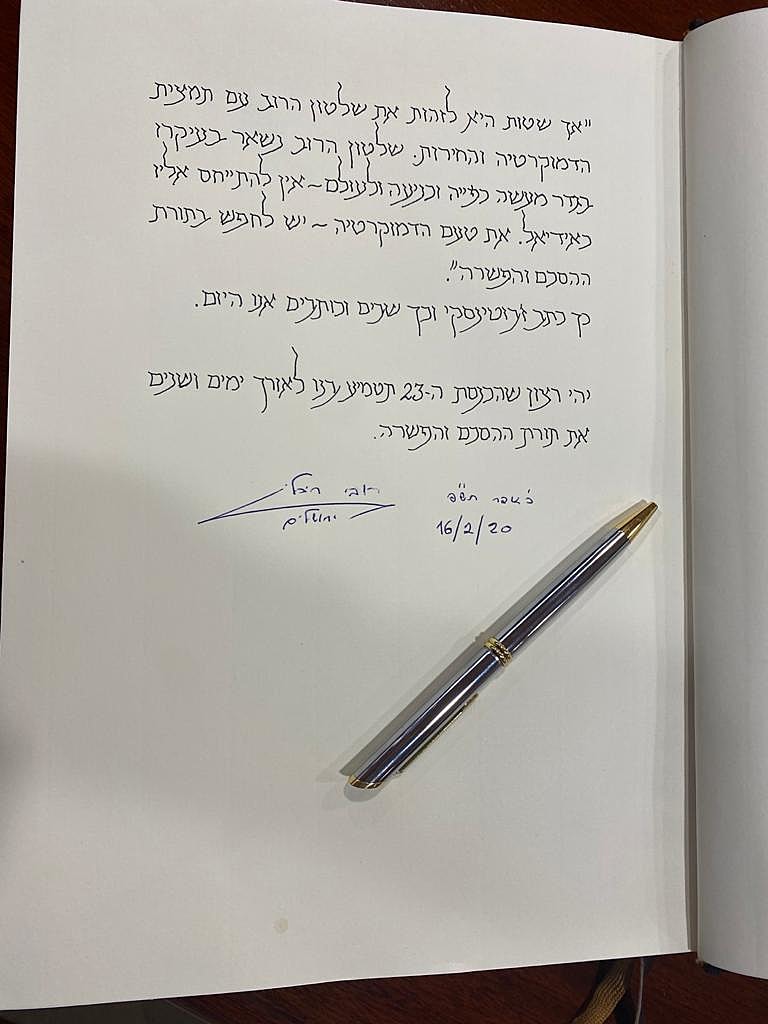 "אך שטות היא לזהות את שלטון הרוב עם תמצית
הדמוקרטיה והחירות. שלטון הרוב נשאר בעיקרו
בגדר מעשה כפייה וכניעה ולעולם - אין להתייחס אליו
כאידיאל. את טעם הדמוקרטיה - יש לחפש בתורת
ההסכם והפשרה".
כך כתב ז'בוטינסקי וכך שבים וכותבים אנו היום.
יהי רצון שהכנסת ה-23 תטמיע בנו לאורך ימים ושנים
את תורת ההסכם והפשרה.
ראובן ריבלין
ירושלים
כ"א שבט תש"פ
16/2/20